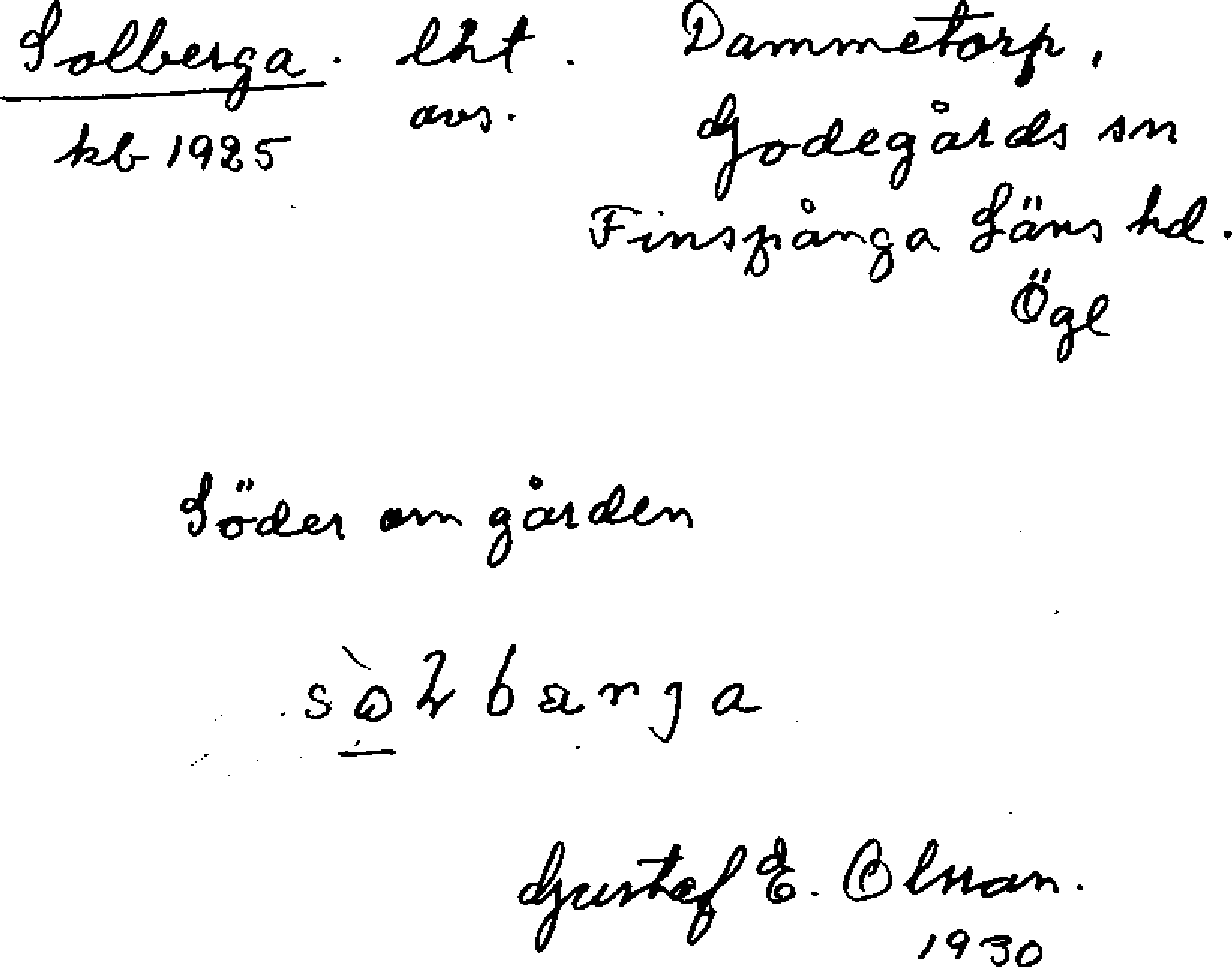 Solberga. lht. Dammetorp,
avs.
kb 1925 Godegårds sn
Finspånga Läns hd.
Ögl
Söder om gården
Gustaf E. Olsson.
1930